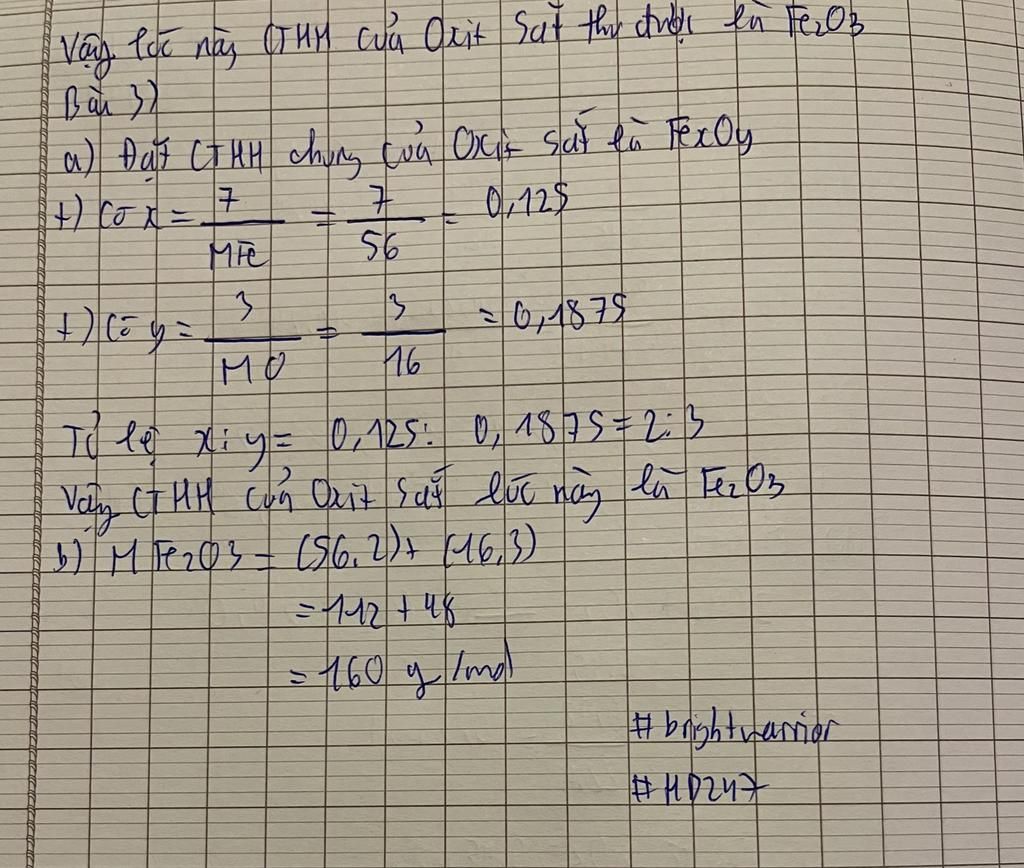 Vậy lúc này CTHH của Oxit Sắt thu được là Fe2O3
Bài 3)
a) Đặt CTHH chung của Oxit Sắt là FexOy
+) Có x = 7/MFe = 7/56 = 0,125
+) Có y = 3/MO = 3/16 = 0,1875
Tỉ lệ x : y = 0,125 : 0,1875 = 2 : 3
Vậy CTHH của Oxit Sắt lúc này là Fe2O3
b) M Fe2O3 = (56.2) + (16.3)
= 112 + 48
= 160 g/mol
#brightwarrior
#HD247